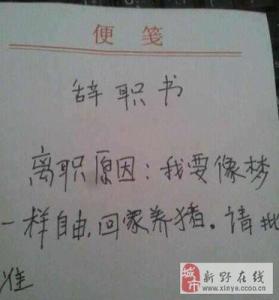 便笺
辞职书
离职原因：我要像梦
一样自由，回家养猪。请批
准
城市 新野在线
www.xinye.ccoo.cn